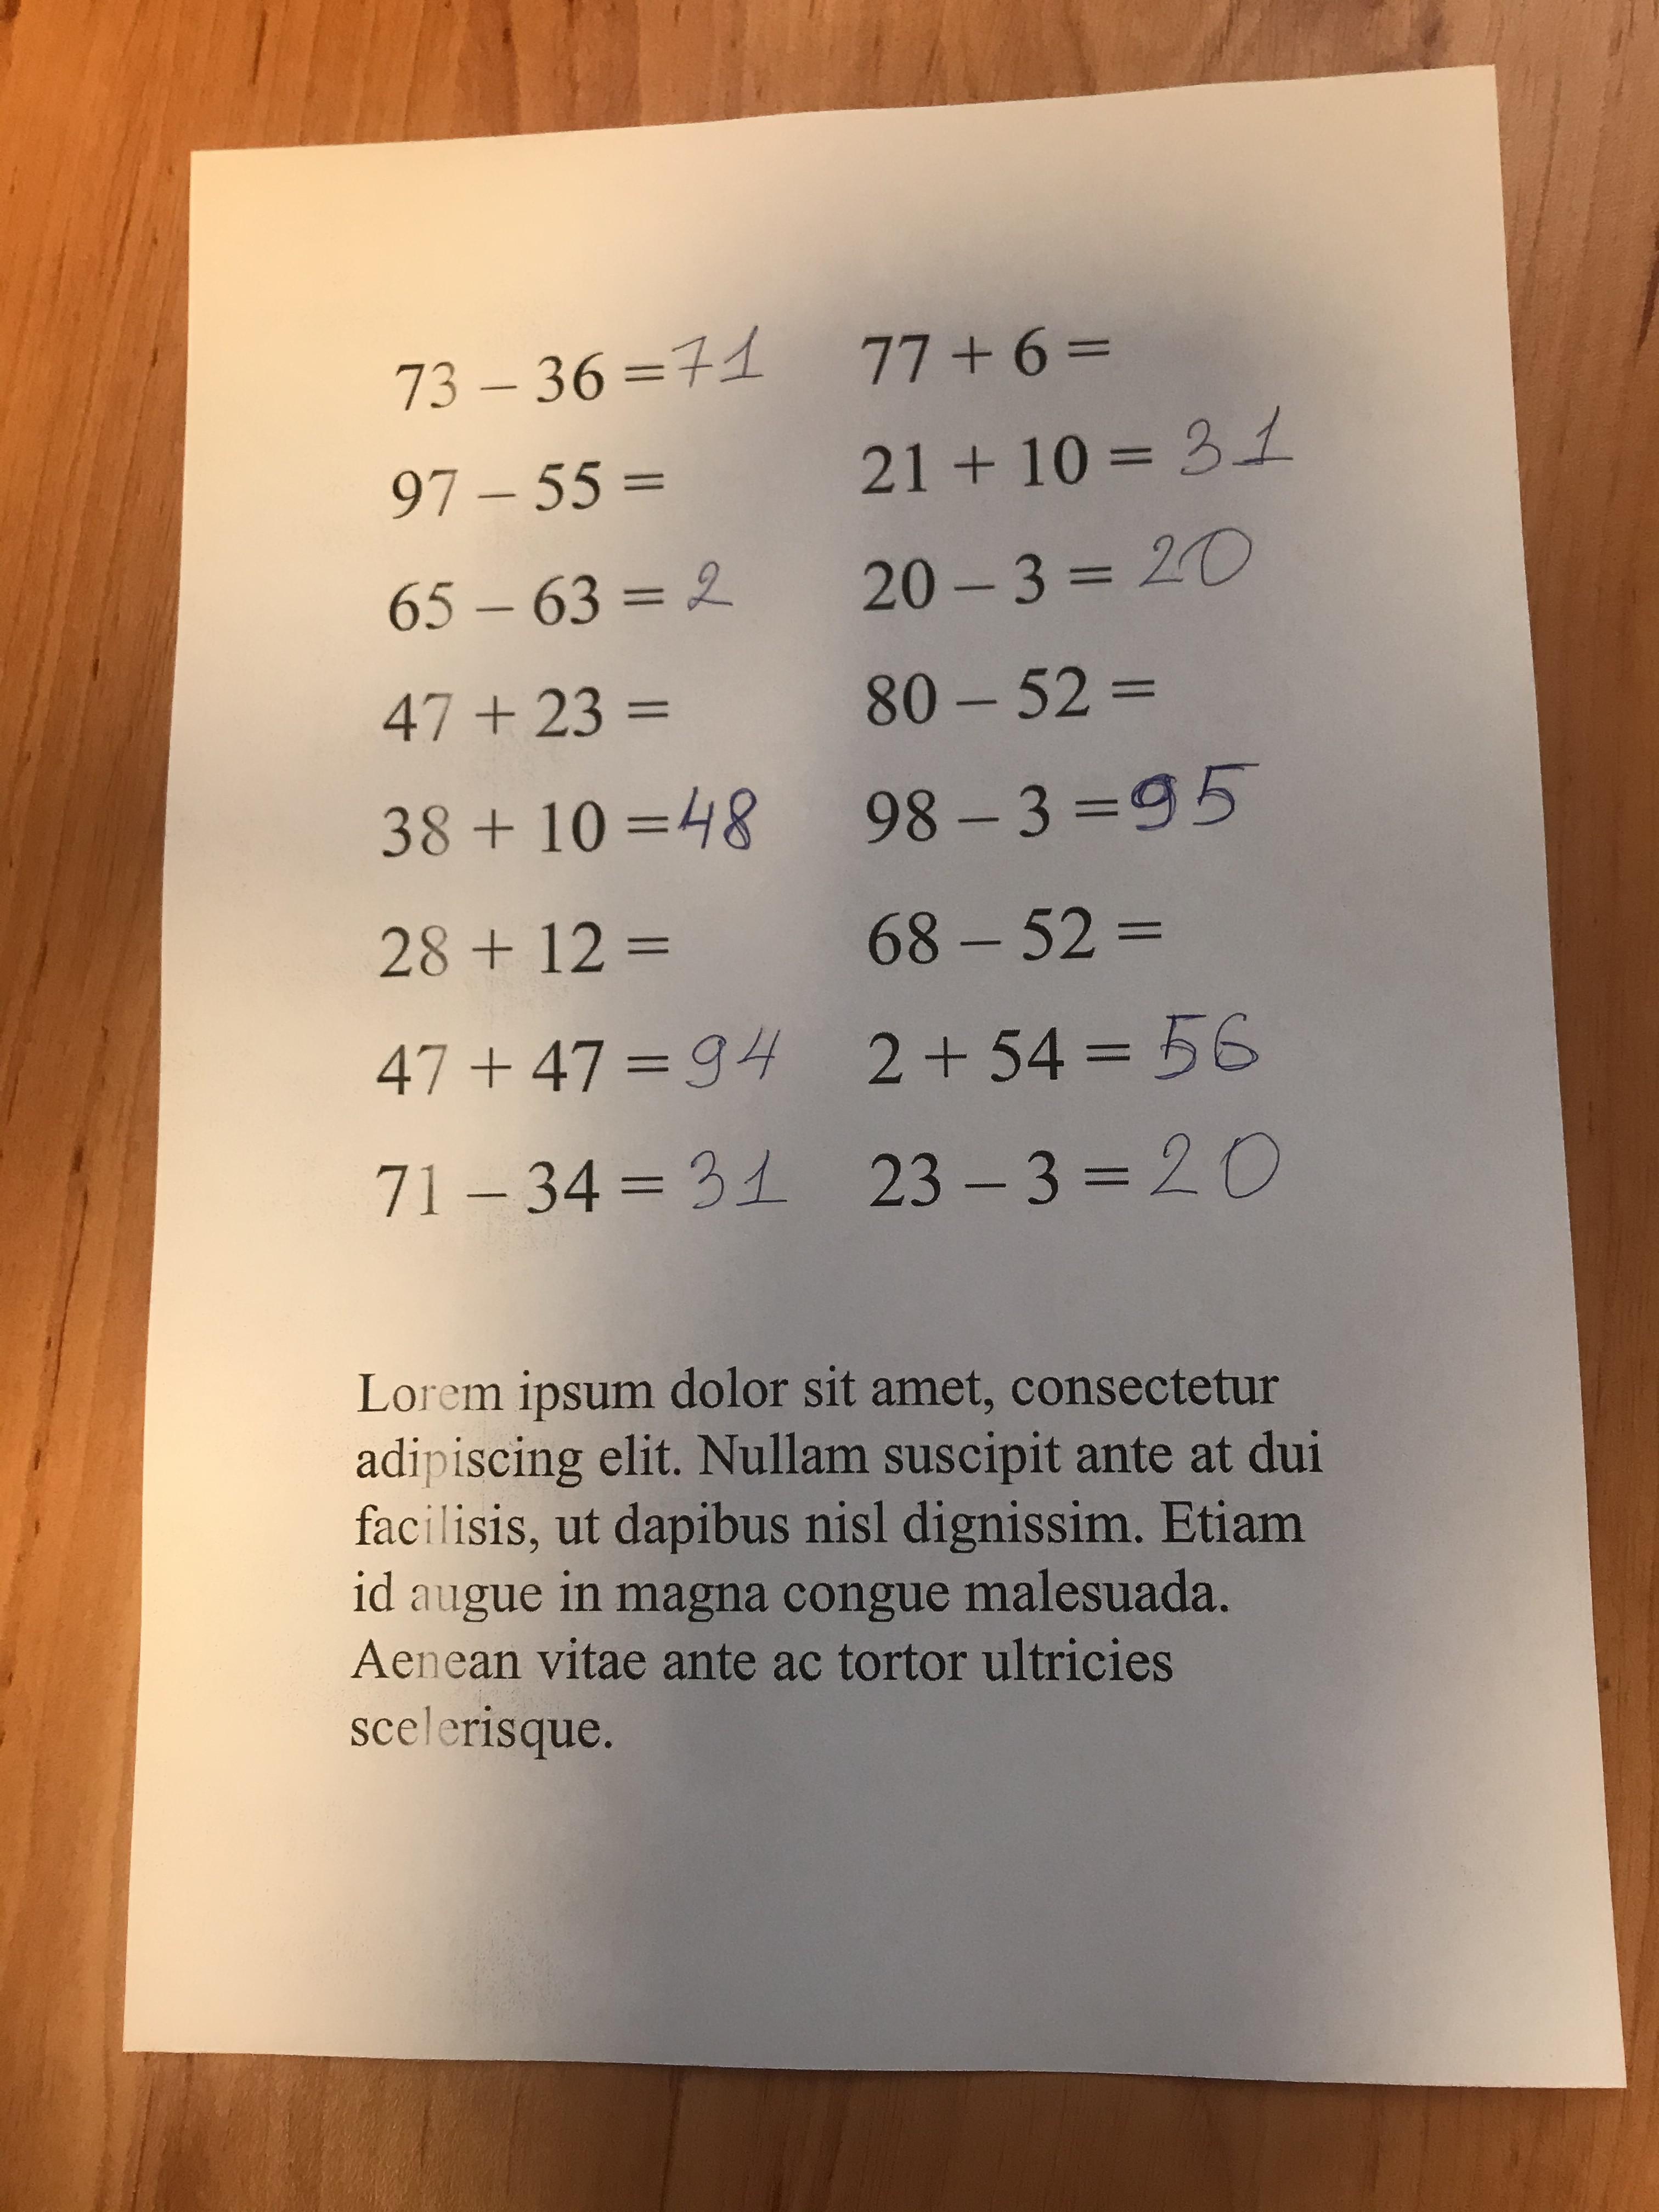 73 – 36 = 71
97 – 55 =
65 – 63 = 2
47 + 23 =
38 + 10 = 48
28 + 12 =
47 + 47 = 94
71 – 34 = 31
77 + 6 =
21 + 10 = 31
20 – 3 = 20
80 – 52 =
98 – 3 = 95
68 – 52 =
2 + 54 = 56
23 – 3 = 20
Lorem ipsum dolor sit amet, consectetur
adipiscing elit. Nullam suscipit ante at dui
facilisis, ut dapibus nisl dignissim. Etiam
id augue in magna congue malesuada.
Aenean vitae ante ac tortor ultricies
scelerisque.